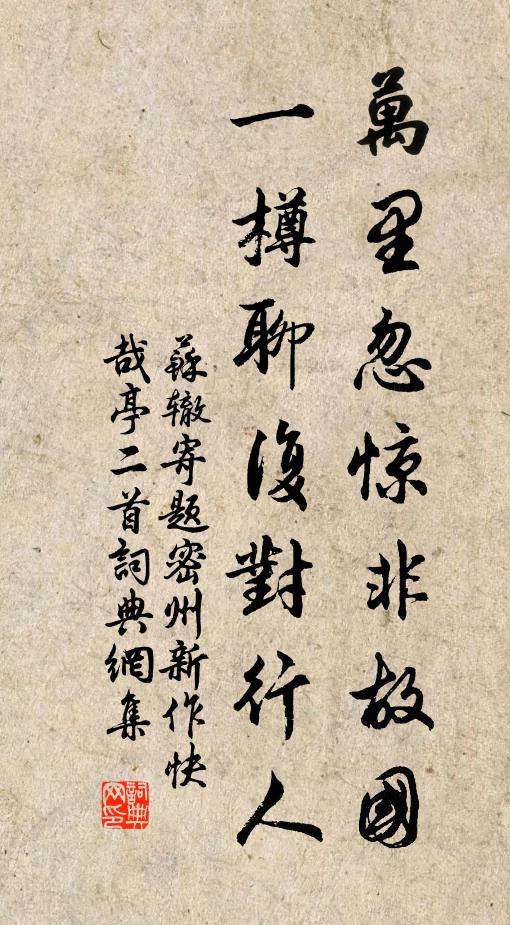 萬里忽惊非故國
一樽聊復對行人
蘇辙寄题密州新作快
哉亭二首詞典網集
詞典网印